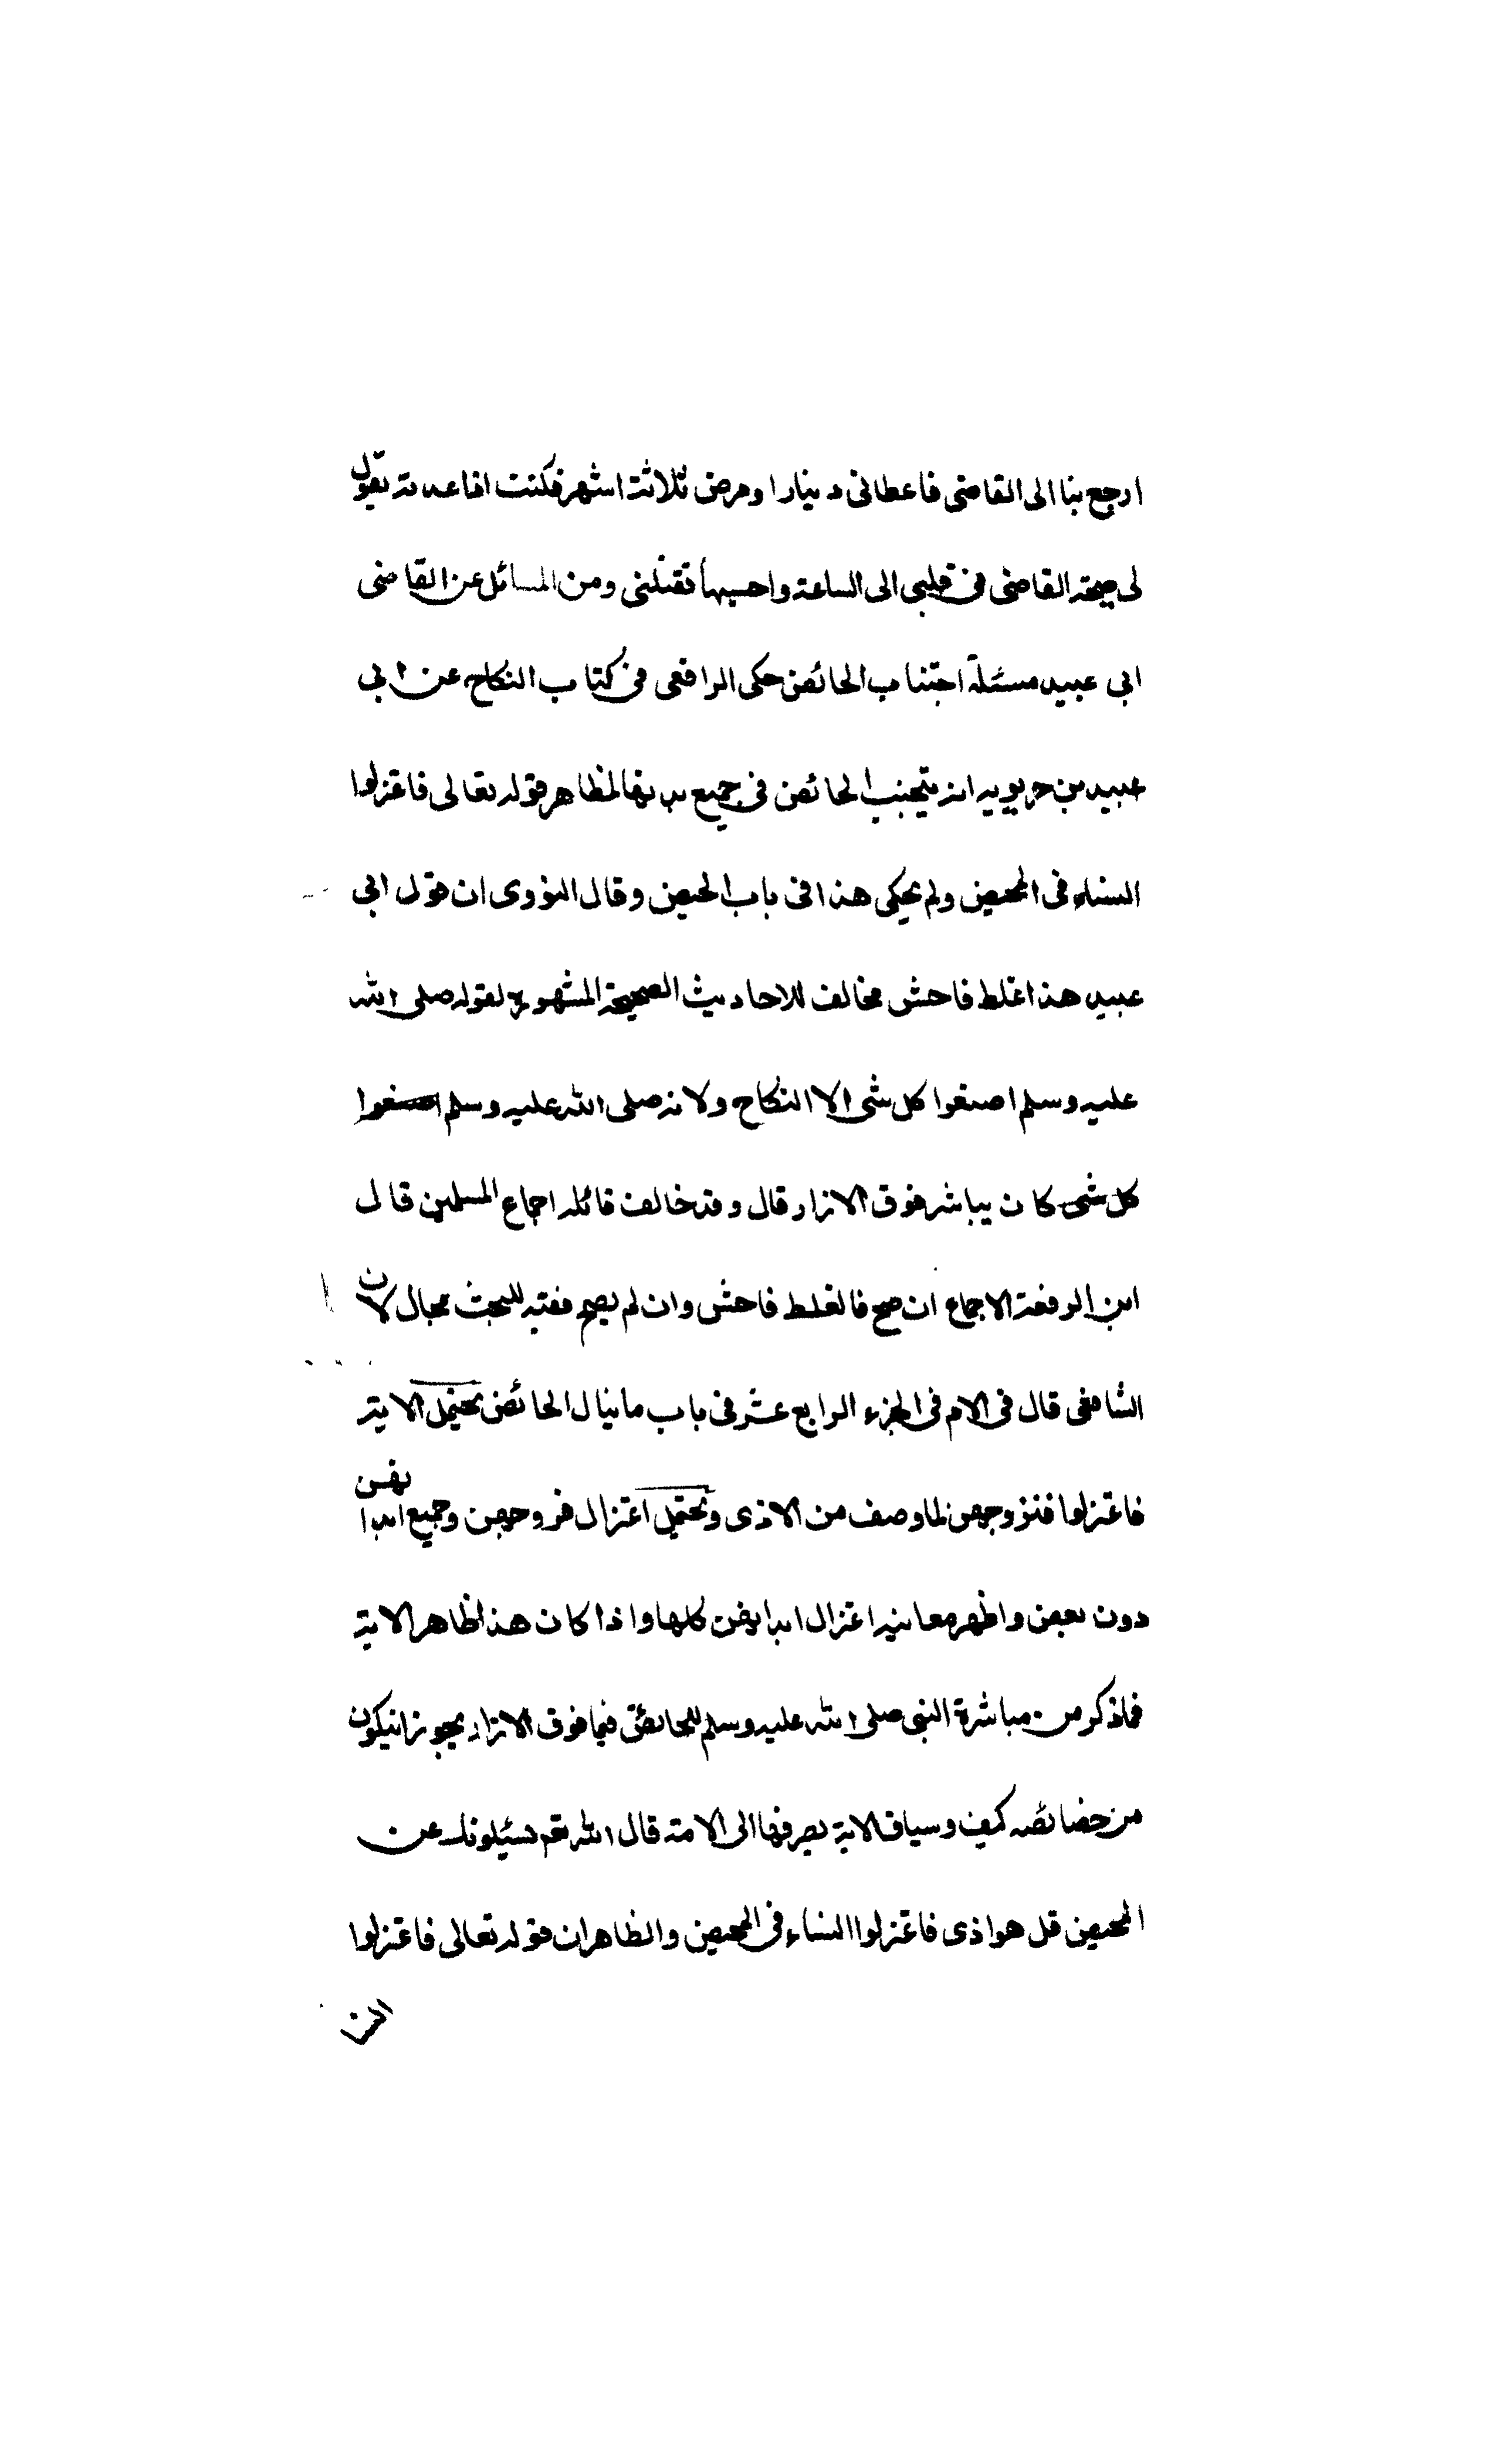 ارجع بنا الى القاضى فاعطانى دينارا ومرض ثلاثة اشهر فكنت اذا عدته يقول
لى صيحة القاضى فى قلبى الى الساعة واحسبها تقتلنى ومن المسائل عن القاضى
ابى عبيد مسئلة اجتناب الحائض حكى الرافعى فى كتاب النكاح عن ابى
عبيد بن حربويه انه يتجنب الحائض فى جميع بدنها لظاهر قوله تعالى فاعتزلوا
النساء فى المحيض ولم يحكى هذا فى باب الحيض وقال النووى ان قول ابى
عبيد هذا غلط فاحش مخالف للاحاديث الصحيحة المشهورة لقوله صلى الله
عليه وسلم اصنعوا كل شى الا النكاح ولانه صلى الله عليه وسلم اصنعوا
كل شى كان يباشر فوق الازار قال وقد خالف قائله اجماع المسلمين قال
ابن الرفعة الاجماع ان صح فالغلط فاحش وان لم يصح ففيه للبحث مجال لان
الشافعى قال فى الام فى الجزء الرابع عشر فى باب ما ينال الحائض يحتمل الاية
فاعتزلوا فروجهن لما وصف من الاذى ويحتمل اعتزال فروجهن وجميع ابدانهن
دون بعض واظهر معانيه اعتزال ابدانهن كلها واذا كان هذا ظاهر الاية
فما ذكر من مباشرة النبى صلى الله عليه وسلم للحائض فيما فوق الازار يجوز ان يكون
من خصائصه كيف وسياق الاية يصرفها الى الامة قال الله تعم يسئلونك عن
المحيض قل هو اذى فاعتزلوا النساء فى المحيض والظاهر ان قوله تعالى فاعتزلوا